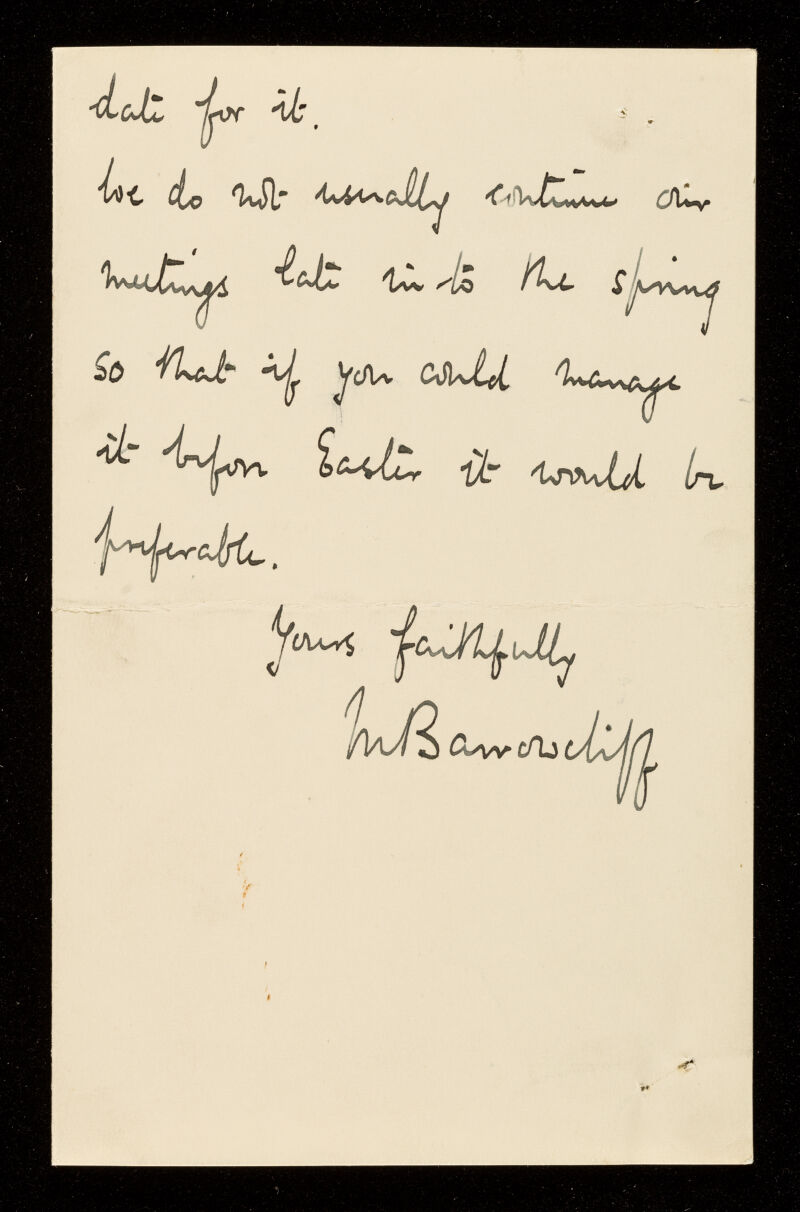 date for it.
We do not usually continue our
meetings late in to the spring
so that if you could manage
it before Easter it would be
preferable.
Yours faithfully
M Barrowcliff